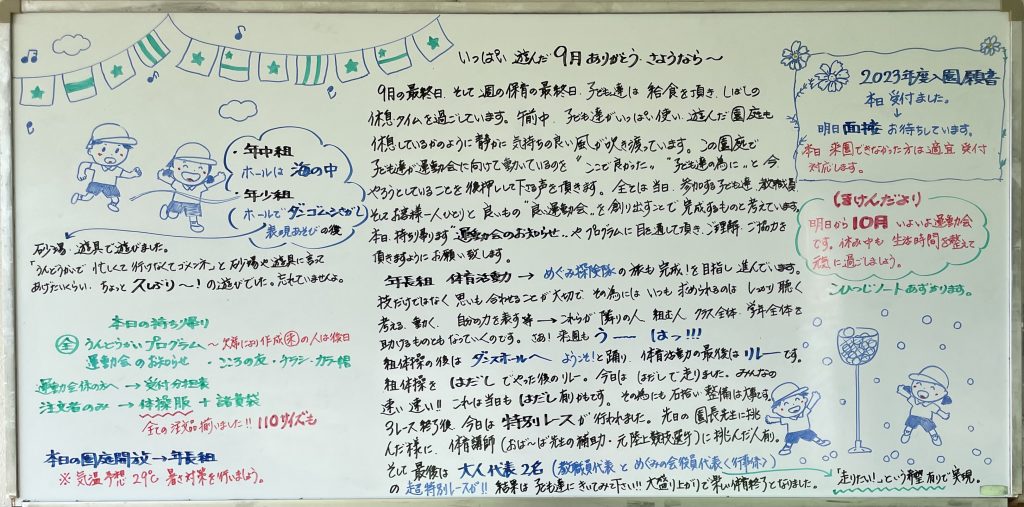 いっぱい遊んだ9月ありがとう.さようなら〜
9月の最終日.そして週の保育の最終日.子ども達は給食を頂き.しばしの
休息タイムを過ごしています。午前中.子ども達がいっぱい使い.遊んだ園庭も
休息しているかのように静かに気持ちの良い風が吹き渡っています。この園庭で
子ども達が運動会に向けて動いているのを"ここで良かった。""子ども達の為に。"と今
やろうとしていることを後押しして下さる声を頂きます。全ては当日.参加する子ども達.教職員
そしてお客様一人ひとりと良いもの"良い運動会"を創り出すことで完成するものと考えています。
本日.持ち帰ります"運動会のお知らせ"やプログラムに目を通して頂き.ご理解.ご協力を
頂きますようにお願い致します。
年長組 体育活動 → めぐみ探険隊の旅も完成!を目指し進んでいます。
技だけではなく思いも合わせることが大切で.その為にはいつも求められるのはしっかり聴く
考える.動く.自分の力を表す等→これらが隣りの人.組む人.クラス全体.学年全体を
助けるものともなっていくのです。さあ!来週もうーー はっ!!!
組体操の後はダンスホールへようこそ!と踊り.体育活動の最後はリレーです。
組体操をはだしでやった後のリレー。今日ははだしで走りました。みんなの
速い速い!!これは当日もはだし有かもです。その為にも万拾い.整備は大事です。
リレース終了後.今日は特別レースが行われました。先日の園長先生に挑
んだ様に.体育講師(おば〜ば先生の補助・元陸上競技選手)に挑んだ人有。
そして最後は大人代表2名(教職員代表とめぐみの会役員代表<行事係>)
の超特別レースが!!結果は子ども達にきいてみて下さい!!大盛り上がりで楽しい体育終了となりました。
→「走りたい!」という希望有りで実現。
・年中組
ホールは海の中
・年少組
ホールでダンゴムシさがし
表現あそびの後
砂場・遊具で遊びました。
「うんどうかいで忙しくて行けなくてゴメンネ」と砂場や遊具に言って
あげたいくらい.ちょっと久しぶり〜!の遊びでした。忘れていませんよ。
本日の持ち帰り
全 うんどうかいプログラム〜欠席により作成未の人は後日
運動会のお知らせ・こころの友・チラシ・カラー帽
運動会係の方へ→受付分担表
注文者のみ→体操服+諸費袋
全ての注文品揃いました!!110サイズも
本日の園庭開放→年長組
※気温予想29℃ 暑さ対策を行いましょう。
2023年度入園願書
本日受付ました。
↓
明日面接お待ちしています。
本日来園できなかった方は適宜受付
対応します。
ほけんだより
明日から10月 いよいよ運動会
です。休み中も生活時間を整えて
元気に過ごしましょう。
こひつじノートあずかります。